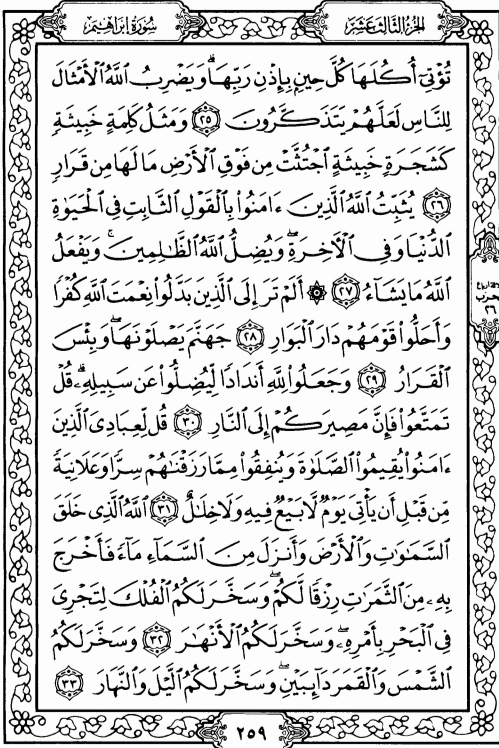 سُورَةُ إِبْرَاهِيمَ
الجُزْءُ الثَّالِثَ عَشَرَ
تُؤْتِيٓ أُكُلَهَا كُلَّ حِينٍۭ بِإِذْنِ رَبِّهَاۗ وَيَضْرِبُ ٱللَّهُ ٱلْأَمْثَالَ
لِلنَّاسِ لَعَلَّهُمْ يَتَذَكَّرُونَ ٢٥ وَمَثَلُ كَلِمَةٍ خَبِيثَةٍ
كَشَجَرَةٍ خَبِيثَةٍ ٱجْتُثَّتْ مِن فَوْقِ ٱلْأَرْضِ مَا لَهَا مِن قَرَارٍ
٢٦ يُثَبِّتُ ٱللَّهُ ٱلَّذِينَ ءَامَنُوا۟ بِٱلْقَوْلِ ٱلثَّابِتِ فِى ٱلْحَيَوٰةِ
ٱلدُّنْيَا وَفِى ٱلْـَٔاخِرَةِۖ وَيُضِلُّ ٱللَّهُ ٱلظَّـٰلِمِينَۚ وَيَفْعَلُ
ٱللَّهُ مَا يَشَآءُ ٢٧ ۞ أَلَمْ تَرَ إِلَى ٱلَّذِينَ بَدَّلُوا۟ نِعْمَتَ ٱللَّهِ كُفْرًا
وَأَحَلُّوا۟ قَوْمَهُمْ دَارَ ٱلْبَوَارِ ٢٨ جَهَنَّمَ يَصْلَوْنَهَاۖ وَبِئْسَ
ٱلْقَرَارُ ٢٩ وَجَعَلُوا۟ لِلَّهِ أَندَادًا لِّيُضِلُّوا۟ عَن سَبِيلِهِۦۗ قُلْ
تَمَتَّعُوا۟ فَإِنَّ مَصِيرَكُمْ إِلَى ٱلنَّارِ ٣٠ قُل لِّعِبَادِىَ ٱلَّذِينَ
ءَامَنُوا۟ يُقِيمُوا۟ ٱلصَّلَوٰةَ وَيُنفِقُوا۟ مِمَّا رَزَقْنَـٰهُمْ سِرًّا وَعَلَانِيَةً
مِّن قَبْلِ أَن يَأْتِىَ يَوْمٌ لَّا بَيْعٌ فِيهِ وَلَا خِلَـٰلٌ ٣١ ٱللَّهُ ٱلَّذِى خَلَقَ
ٱلسَّمَـٰوَٰتِ وَٱلْأَرْضَ وَأَنزَلَ مِنَ ٱلسَّمَآءِ مَآءً فَأَخْرَجَ
بِهِۦ مِنَ ٱلثَّمَرَٰتِ رِزْقًا لَّكُمْۖ وَسَخَّرَ لَكُمُ ٱلْفُلْكَ لِتَجْرِىَ
فِى ٱلْبَحْرِ بِأَمْرِهِۦۖ وَسَخَّرَ لَكُمُ ٱلْأَنْهَـٰرَ ٣٢ وَسَخَّرَ لَكُمُ
ٱلشَّمْسَ وَٱلْقَمَرَ دَآئِبَيْنِۖ وَسَخَّرَ لَكُمُ ٱلَّيْلَ وَٱلنَّهَارَ ٣٣
حزب
٢٦
٢٥٩